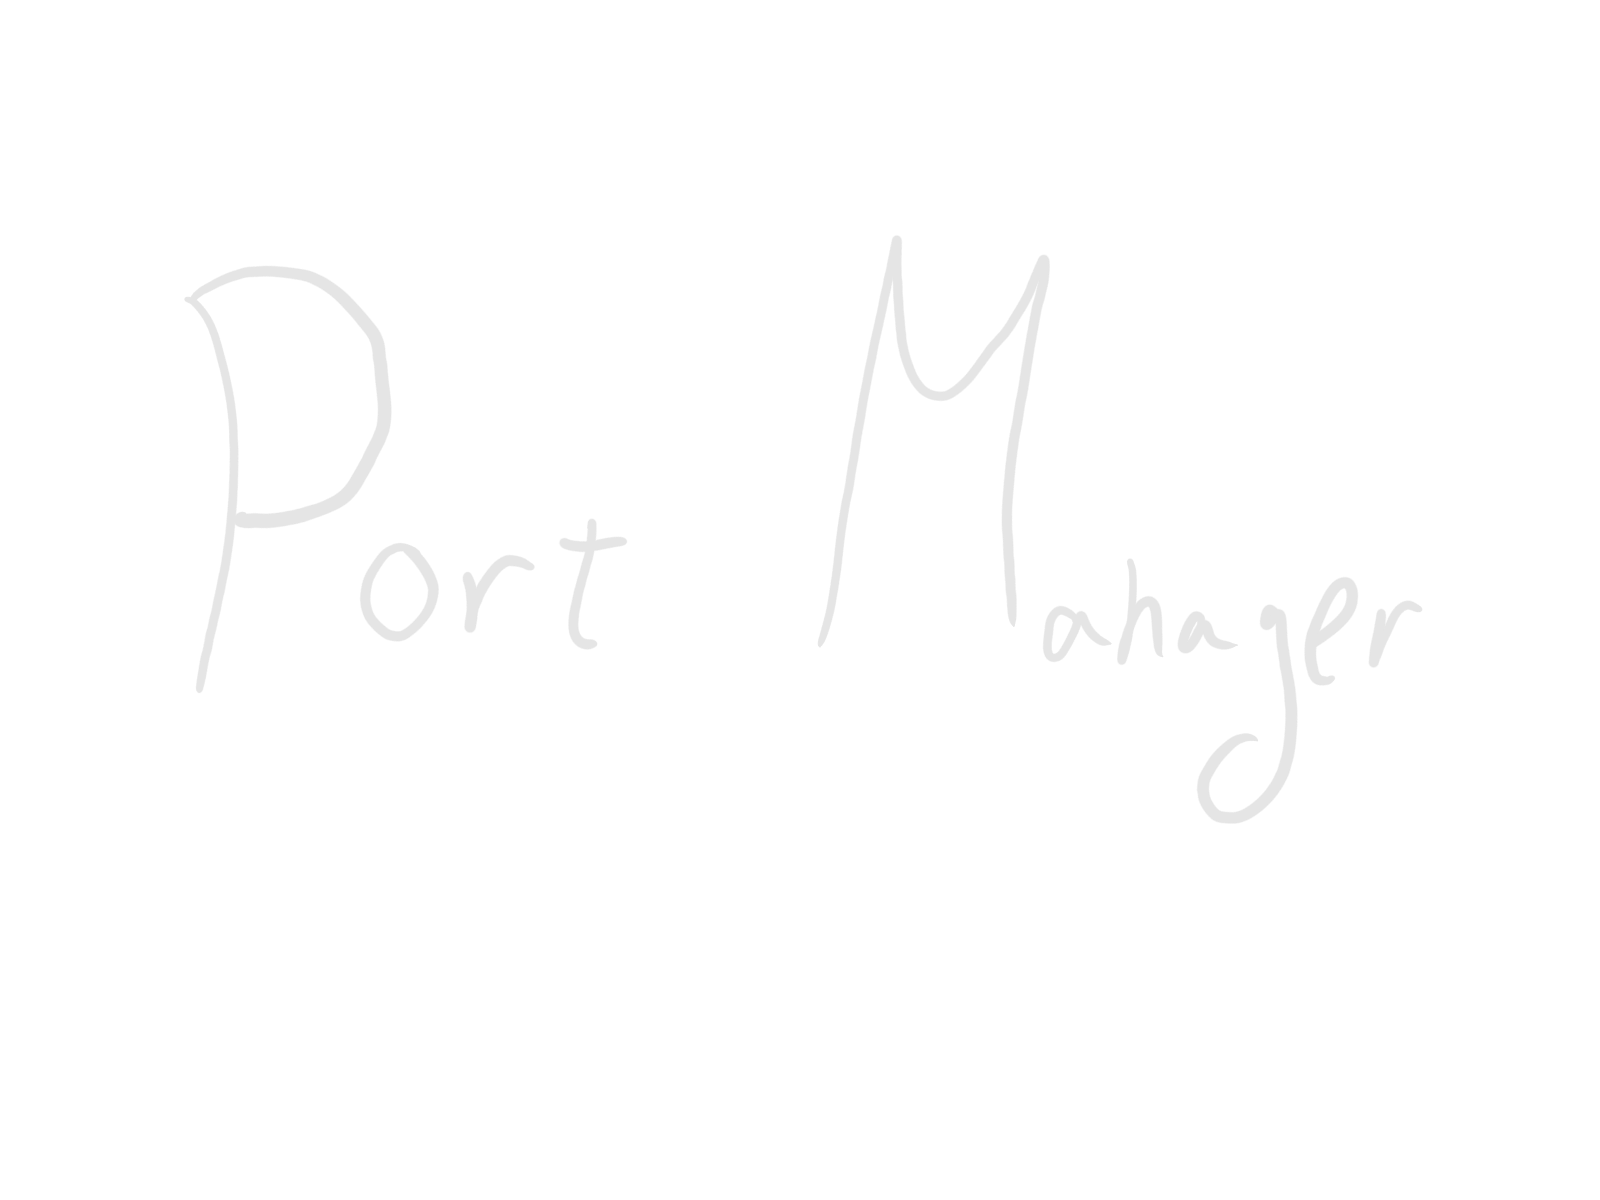 Port Manager